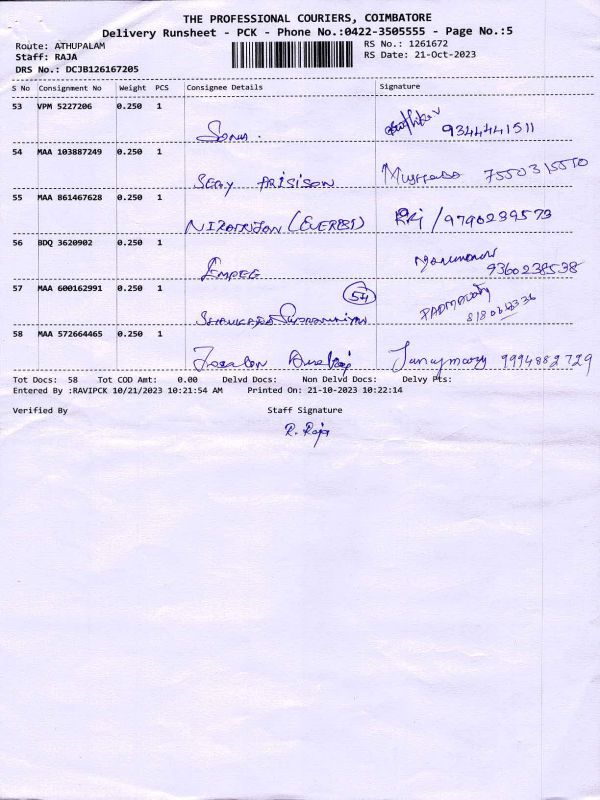 THE PROFESSIONAL COURIERS, COIMBATORE
Delivery Runsheet - PCK - Phone No.:0422-3505555 - Page No.:5
Route: ATHUPALAM RS No.: 1261672
Staff: RAJA RS Date: 21-Oct-2023
DRS No.: DCJB126167205
S No Consignment No Weight PCS Consignee Details Signature
53 VPM 5227206 0.250 1
Sonu. 9344441511
54 MAA 103887249 0.250 1
7550315550
55 MAA 861467628 0.250 1
NIRANJAN / 9790239573
56 BDQ 3620902 0.250 1
EMPEG 9360238538
57 MAA 600162991 0.250 1
PADMAVATHY
58 MAA 572664465 0.250 1
9994882729
Tot Docs: 58 Tot COD Amt: 0.00 Delvd Docs: Non Delvd Docs: Delvy Pts:
Entered By :RAVIPCK 10/21/2023 10:21:54 AM Printed On: 21-10-2023 10:22:14
Verified By Staff Signature
R. Raja